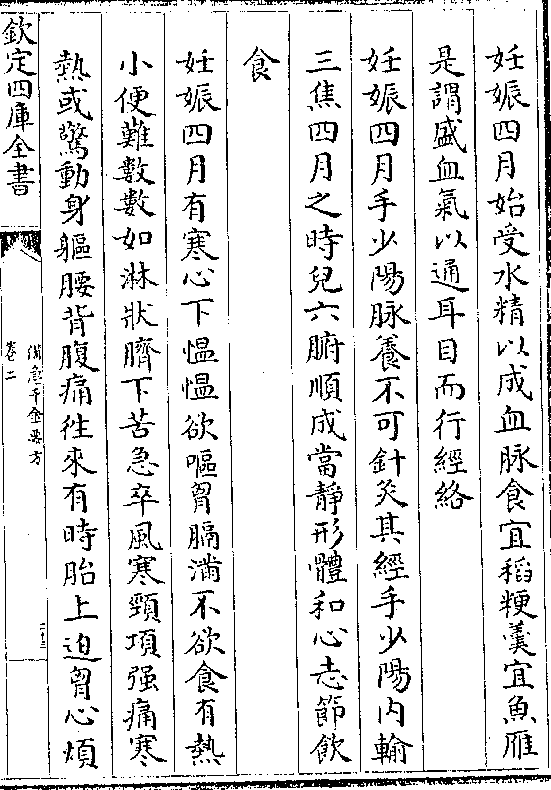 妊娠四月始受水精以成血脉食宜稻粳羮宜魚雁
是謂盛血氣以通耳目而行經絡
妊娠四月手少陽脉養不可針灸其經手少陽内輸
三焦四月之時兒六腑順成當靜形體和心志節飲
食
妊娠四月有寒心下愠愠欲嘔胷膈滿不欲食有熱
小便難數數如淋狀臍下苦急卒風寒頸項强痛寒
熱或驚動身軀腰背腹痛徃來有時胎上迫胷心煩
欽定四庫全書
備急千金要方
卷二